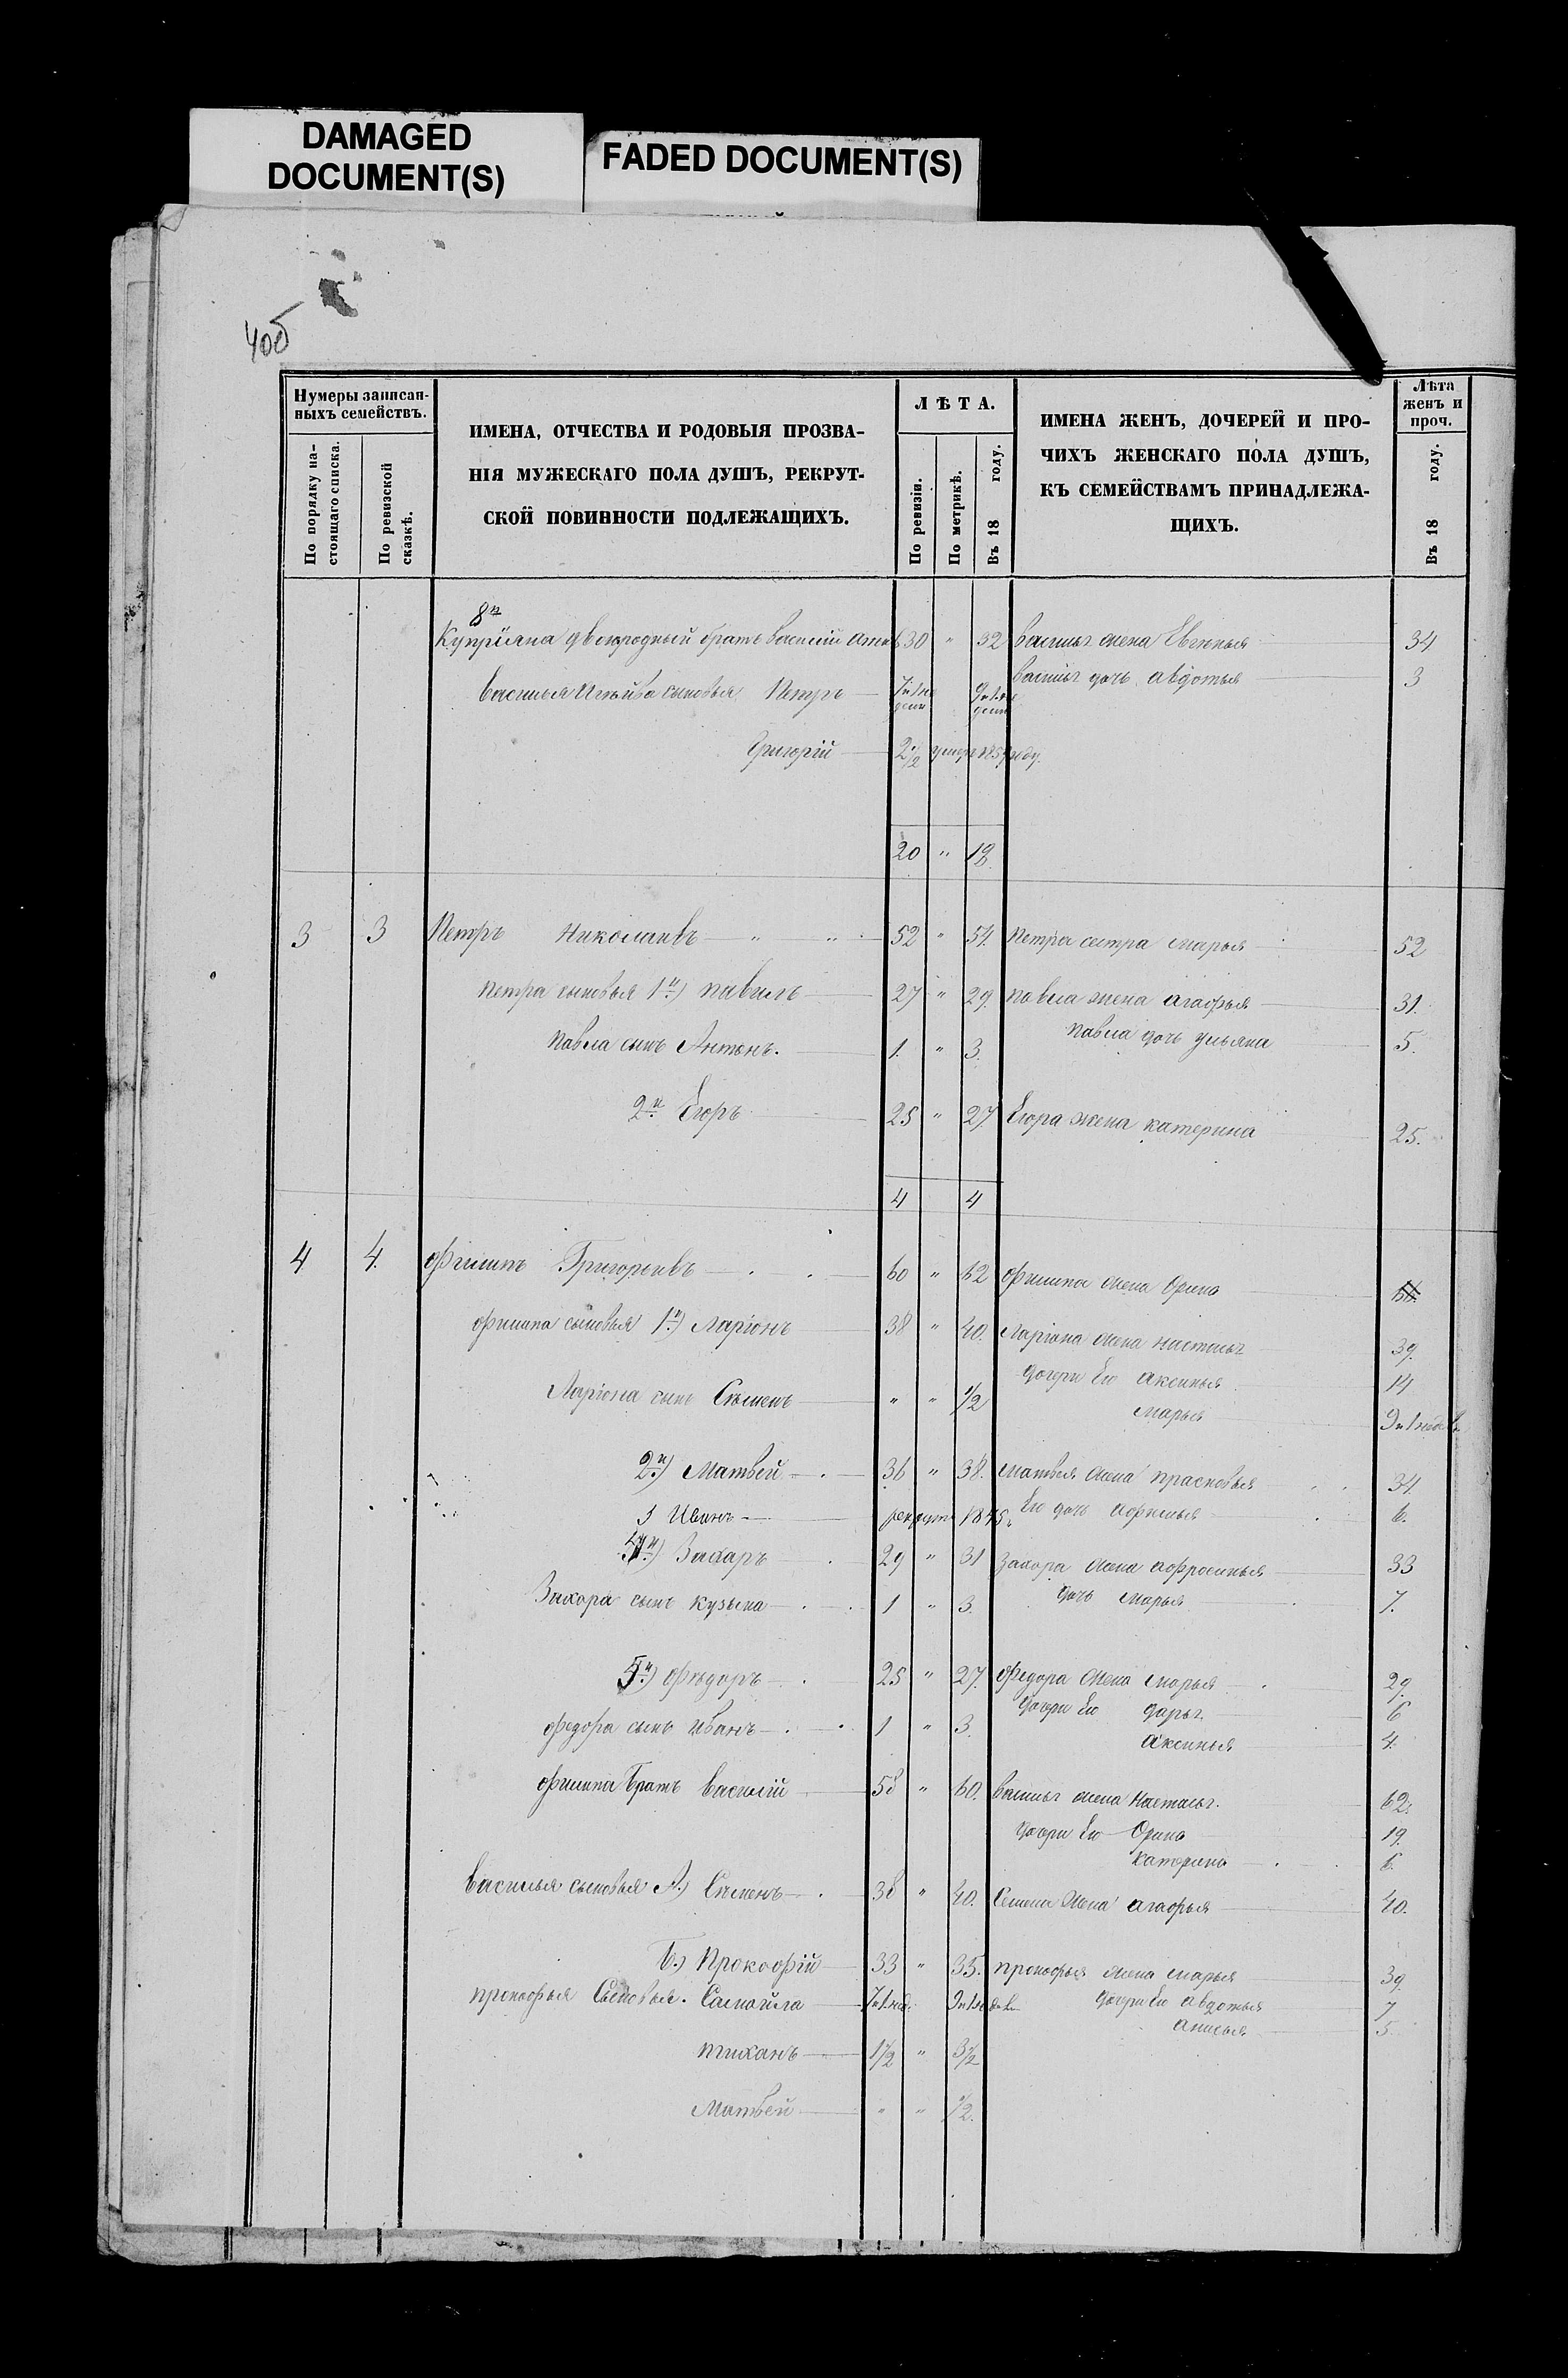 DAMAGED
DOCUMENT(S)
FADED DOCUMENT(S)
400
Нумеры записан-
ныхъ семействъ.
По порядку на-
стоящаго списка.
По ревизской
сказкѣ.
ИМЕНА, ОТЧЕСТВА И РОДОВЫЯ ПРОЗВА-
НІЯ МУЖЕСКАГО ПОЛА ДУШЪ, РЕКРУТ-
СКОЙ ПОВИННОСТИ ПОДЛЕЖАЩИХЪ.
ЛѢТА.
По ревизіи.
По метрикѣ.
Въ 18 году.
ИМЕНА ЖЕНЪ, ДОЧЕРЕЙ И ПРО-
ЧИХЪ ЖЕНСКАГО ПОЛА ДУШЪ,
КЪ СЕМЕЙСТВАМЪ ПРИНАДЛЕЖА-
ЩИХЪ.
Лѣта
женъ и
проч.
Въ 18 году.
8й
Купріяна двоюродный братъ Василий 30 " 32 Васильѧ жена Евгенья 34
Василья сыновья Петръ Васильѧ дочь Авдотья 3
Григорій 2 1/2 умеръ году.
20 " 18
3 3 Петръ Николаивъ " " 52 " 54 Петра сестра марья 52
Петра сыновья 1й) павилъ 27 " 29. павла жена агафья 31.
павла сынъ Антонъ. 1. " 3. павла дочь ульяна 5.
2й Егоръ 25 " 27 Егора жена катерина 25.
4 4
4 4. Филипъ Григорьивъ 60 " 62 филипа жена Орина
филипа сыновья 1й) Ларіонъ 38 " 40. Ларіона жена настасьѧ 39.
дочери Ево аксинья 14
Ларіона сынъ Семенъ " " 1/2 марья
2й) Матвей 36 " 38. матвея жена прасковья 34.
3 Иванъ рекрутъ 1845. Ево дочь 6.
4й) Захаръ 29 " 31 захара жена афросинья 33
Захара сынъ кузьма 1 " 3. дочь марья 7.
5й) Федоръ 25 " 27. федора жена марья 29.
дочери Ево дарьѧ 6
федора сынъ Иванъ 1 " 3. аксинья 4.
филипа Братъ василій 58 " 60. васильѧ жена настасьѧ. 62.
дочери Ево Орина 19.
катерина 6.
василья сыновья А.) Семенъ 38 " 40. Семена жена агафья 40.
Б.) Прокофій 33 " 35. прокофья жена марья 39.
прокофья Сыновья. Самойла дочери Ево авдотья 7
анисья 5.
тиханъ 1 1/2 " 3 1/2
Матвей " " 1/2.